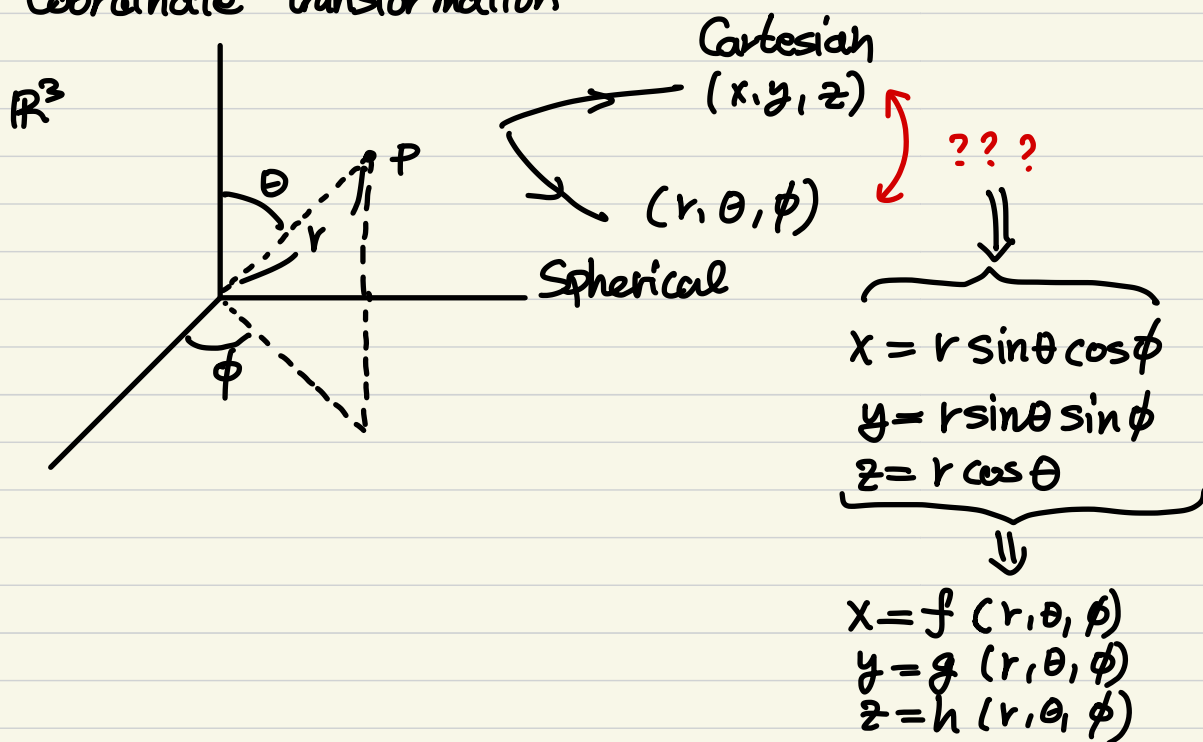 Coordinate transformation
Cartesian
ℝ³
(x, y, z)
? ? ?
P
θ
(r, θ, φ)
r
Spherical
φ
x = r sinθ cosφ
y = r sinθ sinφ
z = r cosθ
x = f (r, θ, φ)
y = g (r, θ, φ)
z = h (r, θ, φ)